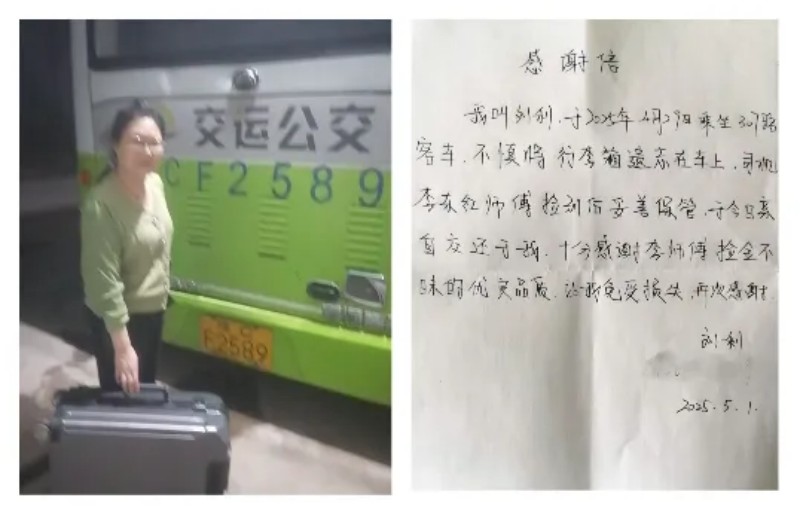 交运公交
CF2589
F2589
感谢信
我叫刘利,于2025年4月29日乘坐309路
客车,不慎将行李箱遗忘在车上,司机
李东红师傅捡到后妥善保管,于今日亲
自交还于我,十分感谢李师傅拾金不
昧的优良品质,让我免受损失,再次感谢!
刘利
2025.5.1.